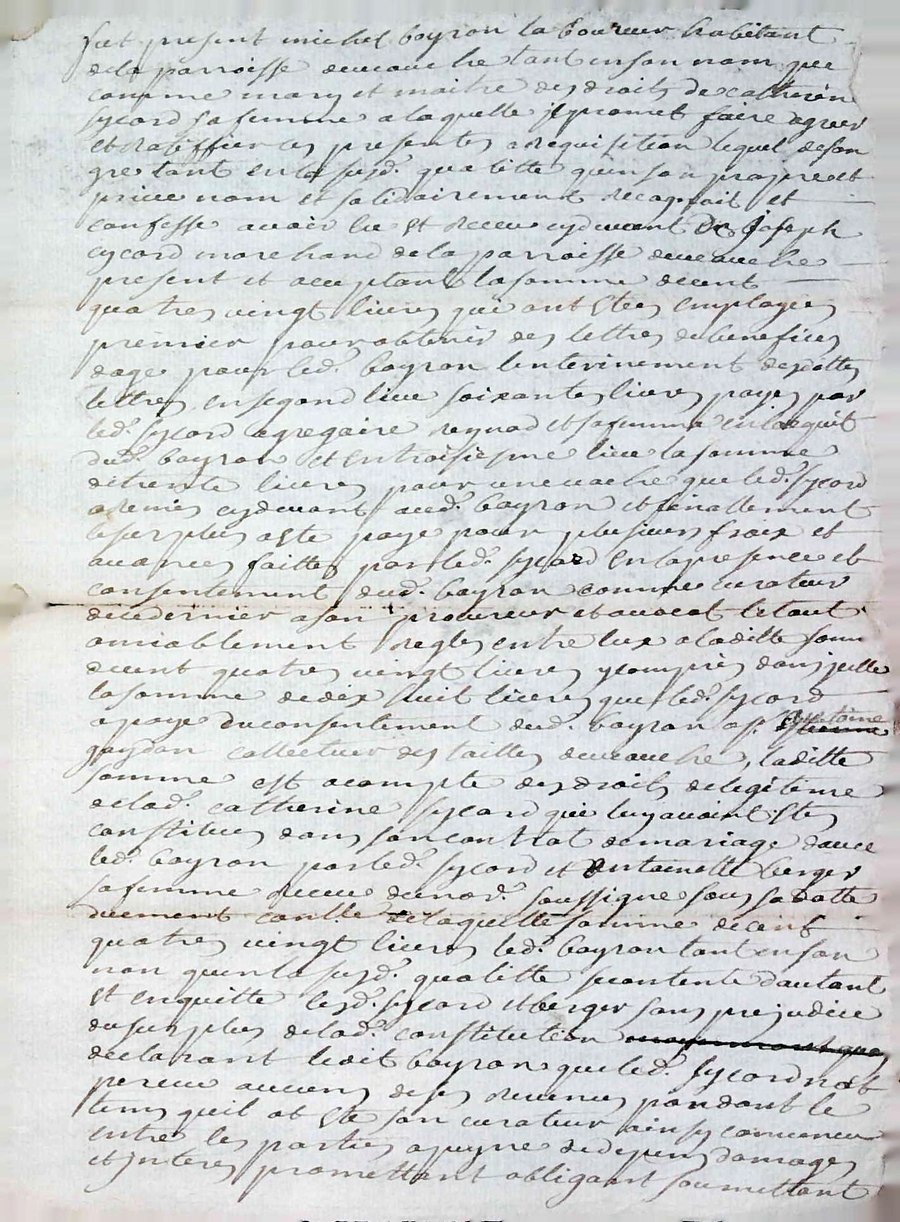 fut present michel boyron laboureur habitant
dela parroisse deueauche tant en son nom que
comme mary et maitre des droits de catherine
sycord sa femme a laquelle il promet faire agreer
et ratiffier les presentes a requisition lequel de son
gre tant en la susd. qualitte qu'en son propre et
priue nom et solidairement recognoit et
confesse auoir eu et receu cydeuant de joseph
sycord marchand dela parroisse deueauche
present et acceptant la somme de cent
quatres vingt liures qui ont estes employees
premier pour obtenir des lettres de benefices
dage pour led. boyron lenterinement desdittes
lettres, en segond lieu soixantes liures payes par
led. sycord a gregaire reynod et sa femme en laquit
dud. boyron et en troisiesme lieu la somme
de trente liures pour une uache que led. sycord
a remis cydeuant aud. boyron et finallement
le surplus a este paye pour plusieurs fraix et
auances faittes par led. sycord en la presence et
consentement dud. boyron comme curateur
de ce dernier a son procureur et auocat le tout
amiablement regles entre eux a laditte somme
de cent quatres vingt liures y compris dans jcelle
la somme de dix huit liures que led. sycord
a paye du consentement dud. boyron a sr. estienne antoine
goydon collecteur des tailles deueauche, laditte
somme est acompte des droits de legitime
de lad. catherine sycord qui luy auoient estes
constitues dans son contrat de mariage d'auec
led. boyron par led. sycord et antoinette berger
sa femme receu du not. soussigne sous sa datte
duement conlle. de laquelle somme de cent
quatres vingt liures led. boyron tant en son
non qu'en la susd. qualitte se contente d'autant
et en quitte lesd. sycord et berger sans prejudice
du surplus de lad. constitution
declarant ledit boyron que led. sycord n'at
perceu aucuns de ses reuenus pendant le
tems quil at este son curateur ainsy conuenu
entre les parties a peyne de depens domages
et jnterets promettant obligant soumettant